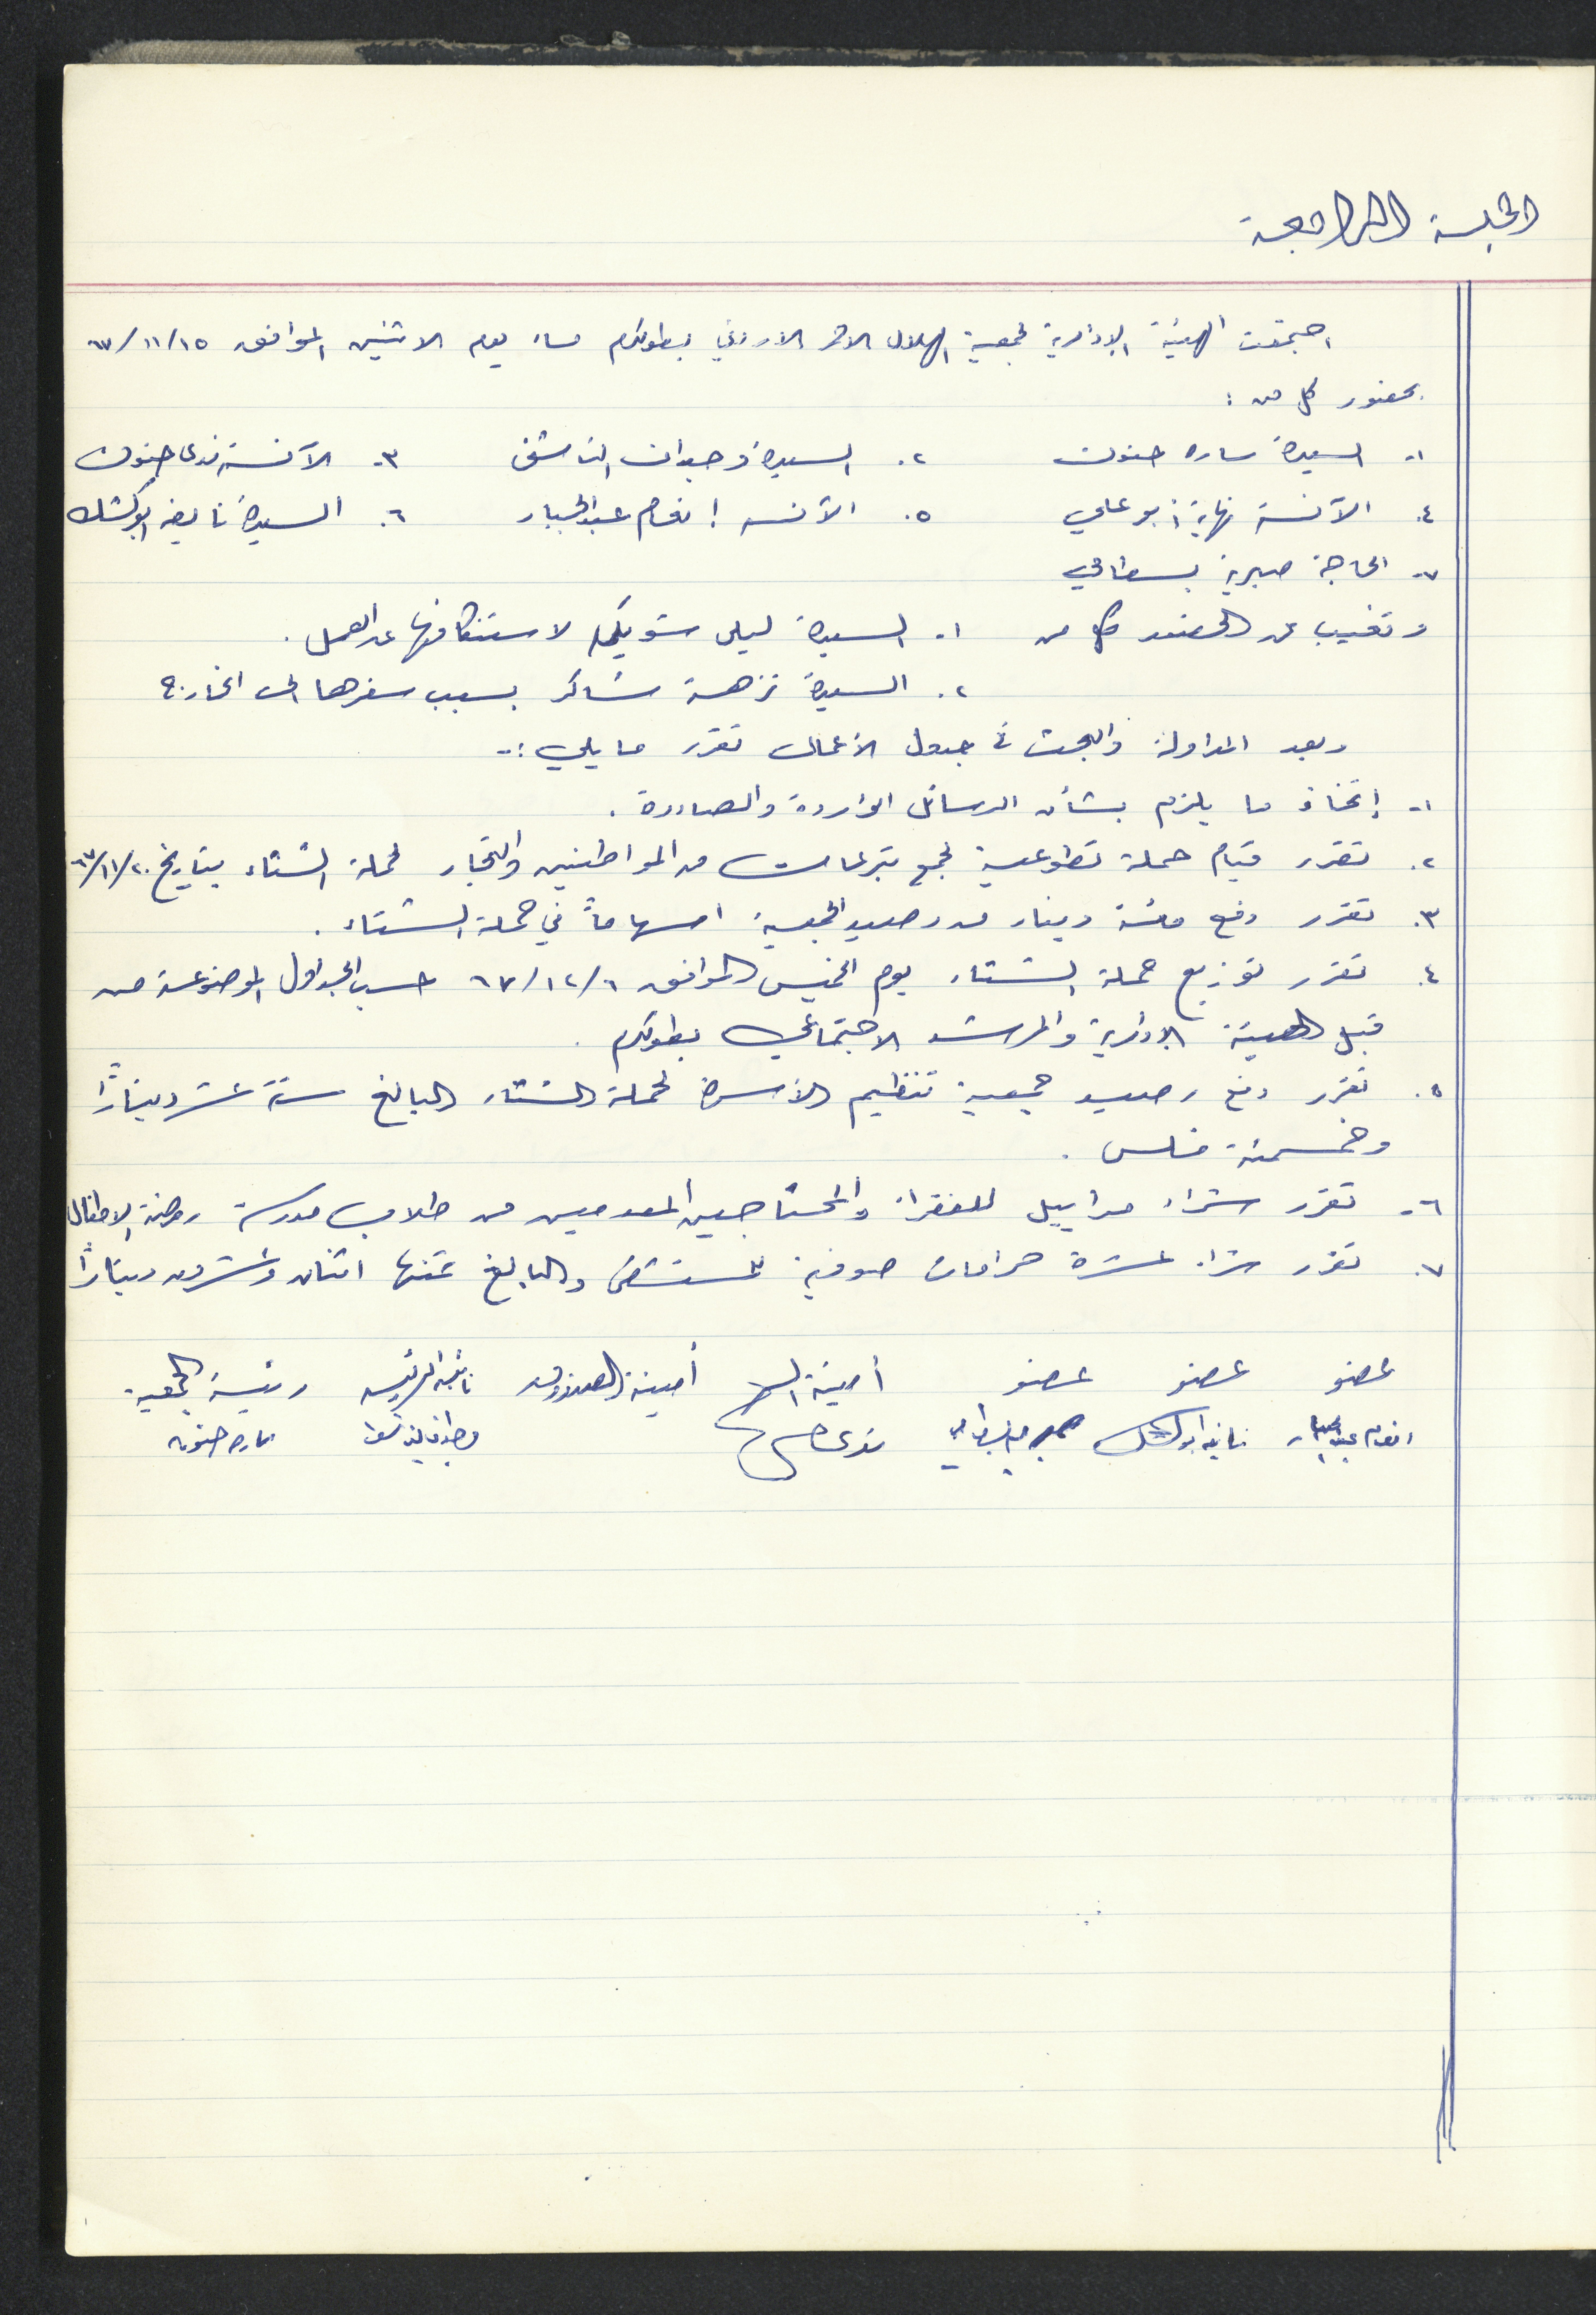 الجلسة الرابعة
اجتمعت الهيئة الإدارية لجمعية الهلال الاحمر الاردني بطولكرم مساء يوم الاثنين الموافق ١٥/١١/٦٧
بحضور كل من :
١- السيدة ساره حنون ٢. السيدة وجدان الناشف ٣. الآنسة ندى حنون
٤. الآنسة نهاية أبو علي ٥. الآنسه إنعام عبد الجبار ٦. السيدة نايفه ابو كشك
٧- الحاجة صبرية بسطامي
وتغيب عن الحضور كل من ١- السيدة ليلى شويكي لاستنكافها عن العمل .
٢. السيدة نزهة شاكر بسبب سفرها الى الخارج
وبعد المداولة والبحث في جدول الأعمال تقرر ما يلي :-
١- إتخاذ ما يلزم بشأن الرسائل الواردة والصادرة .
٢. تقرر قيام حملة تطوعية لجمع تبرعات من المواطنين والتجار لحملة الشتاء بتاريخ ٢٠/١١/٦٧
٣. تقرر دفع مئة دينار من رصيد الجمعية اسهاماً في حملة الشتاء .
٤. تقرر توزيع حملة الشتاء يوم الخميس الموافق ٦/١٢/٦٧ حسب الجداول الموضوعة من
قبل الهيئة الإدارية والمرشد الاجتماعي بطولكرم .
٥. تقرر دفع رصيد جمعية تنظيم الأسرة لحملة الشتاء البالغ ستة عشر ديناراً
وخمسمئة فلس .
٦- تقرر شراء مراييل للفقراء والمحتاجين المعدمين من طلاب مدرسة روضة الاطفال
٧. تقرر شراء عشرة حرامات صوفية للمستشفى والبالغ ثمنها اثنان وعشرون ديناراً
عضو عضو عضو أمينة السر أمينة الصندوق نائبة الرئيسه رئيسة الجمعية
انعام عبد الجبار نايفه ابو كشك صبريه البسطامي ندى حنون وجدان الناشف ساره حنون